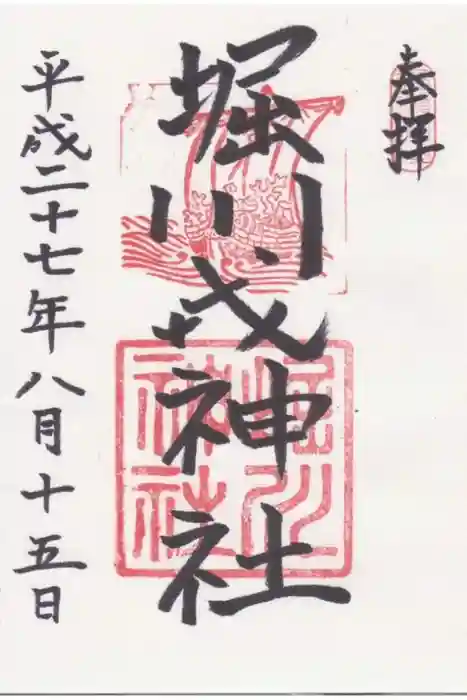 奉拝
堀川戎神社
堀川
神社
平成二十七年八月十五日